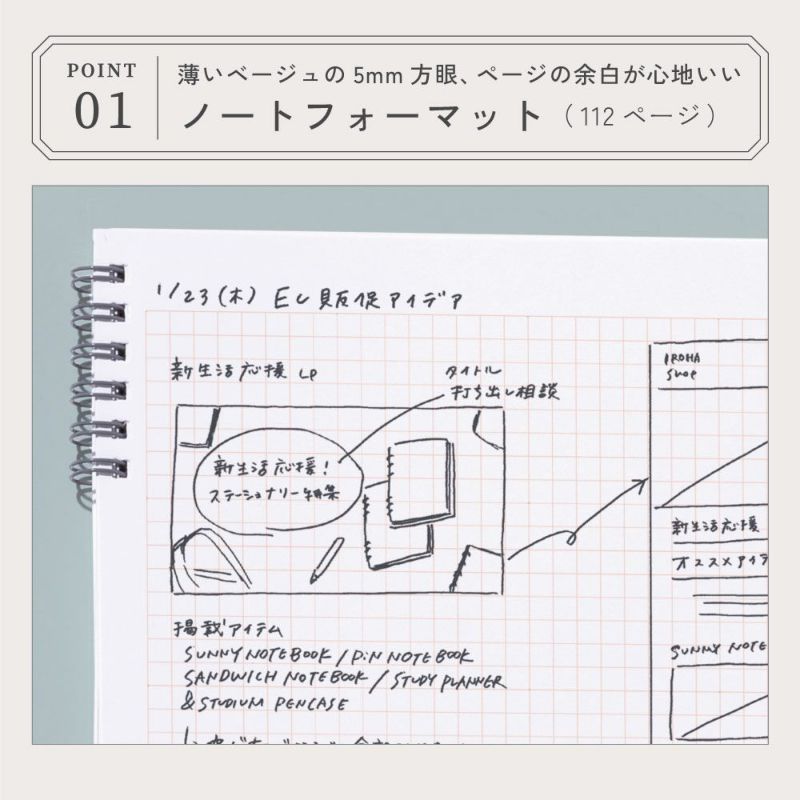 POINT
01
薄いベージュの 5mm 方眼、ページの余白が心地いい
ノートフォーマット（112 ページ）
1/23(木) EC販促アイデア
新生活応援 LP
タイトル
打ち出し相談
新生活応援!
ステーショナリー特集
掲載アイテム
SUNNY NOTEBOOK / PiN NOTEBOOK
SANDWICH NOTEBOOK / STUDY PLANNER
& STUDIUM PENCASE
IROHA
SHOP
新生活応援
オススメアイテ
SUNNY NOTE